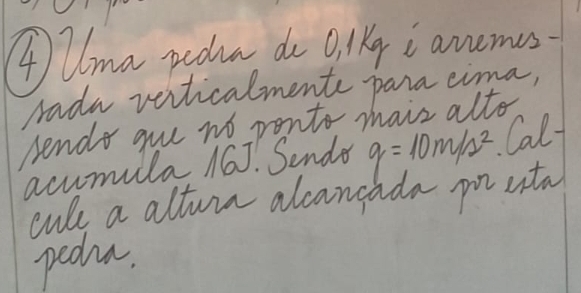 ④ Uma pedra de 0,1Kg é arremes-
sada verticalmente para cima,
sendo que nó ponto mais alto
acumula 16J. Sendo g = 10m/s². Cal-
cule a altura alcançada por esta
pedra.